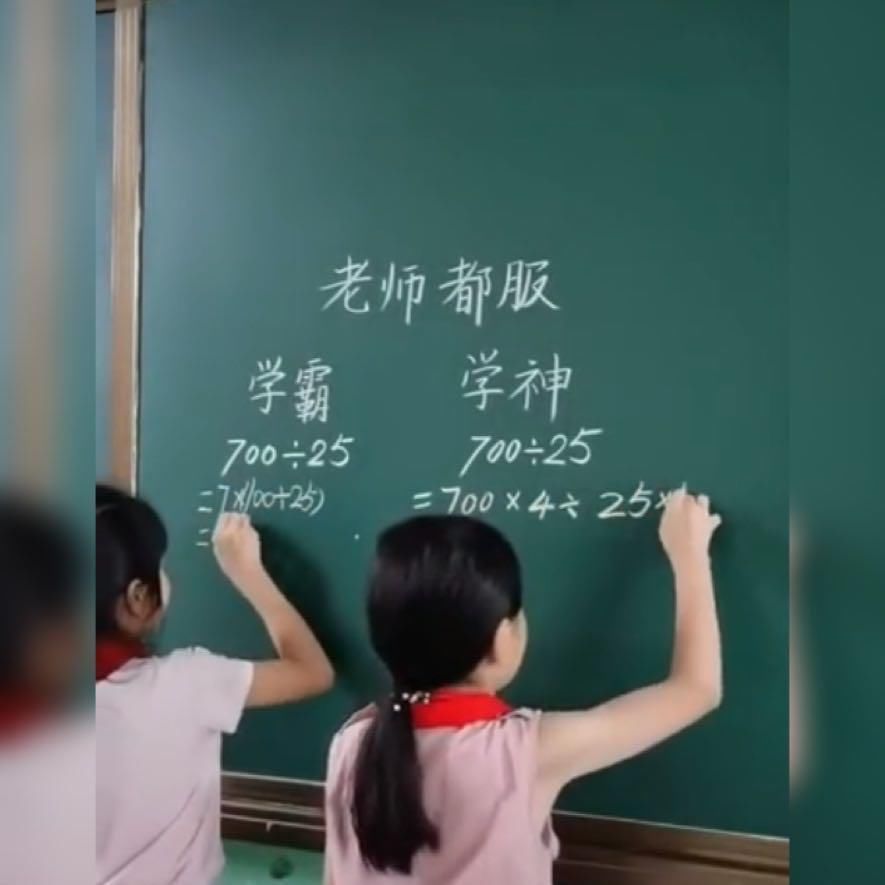 老师都服
学霸 学神
700÷25 700÷25
=7×(100÷25) =700×4÷25×
=